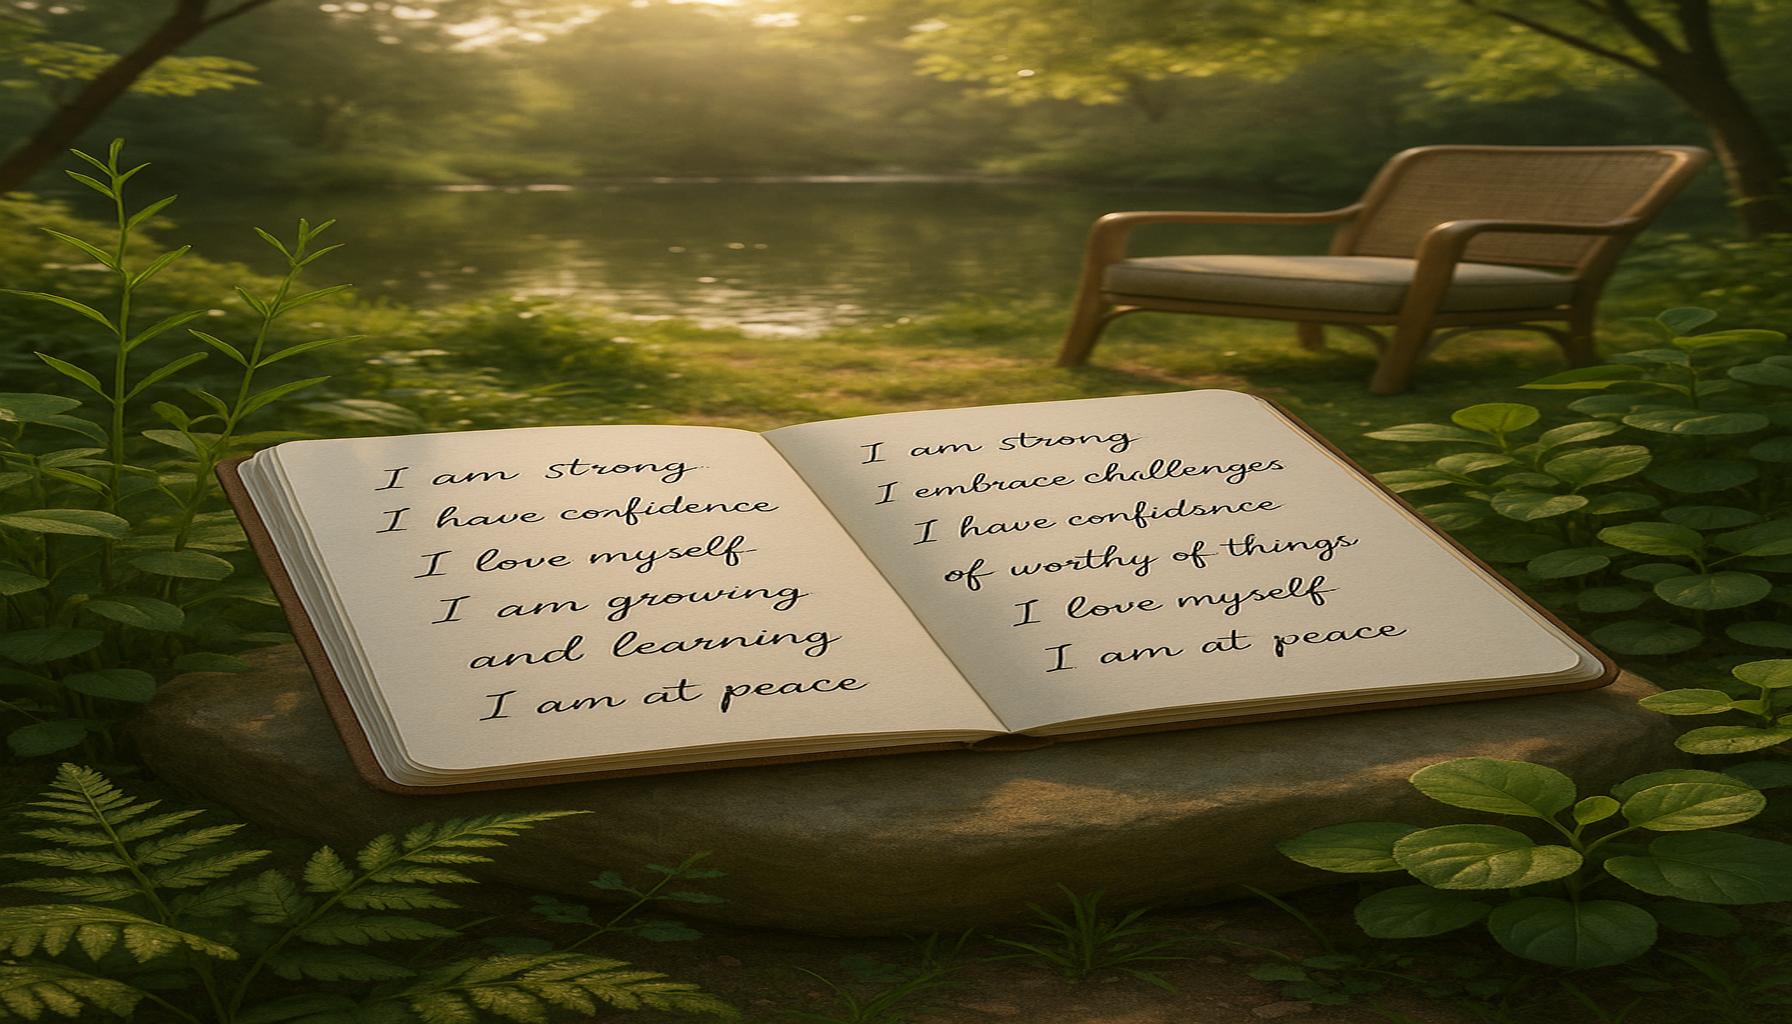 I am strong
I have confidence
I love myself
I am growing
and learning
I am at peace
I am strong
I embrace challenges
I have confidsnce
of worthy of things
I love myself
I am at peace